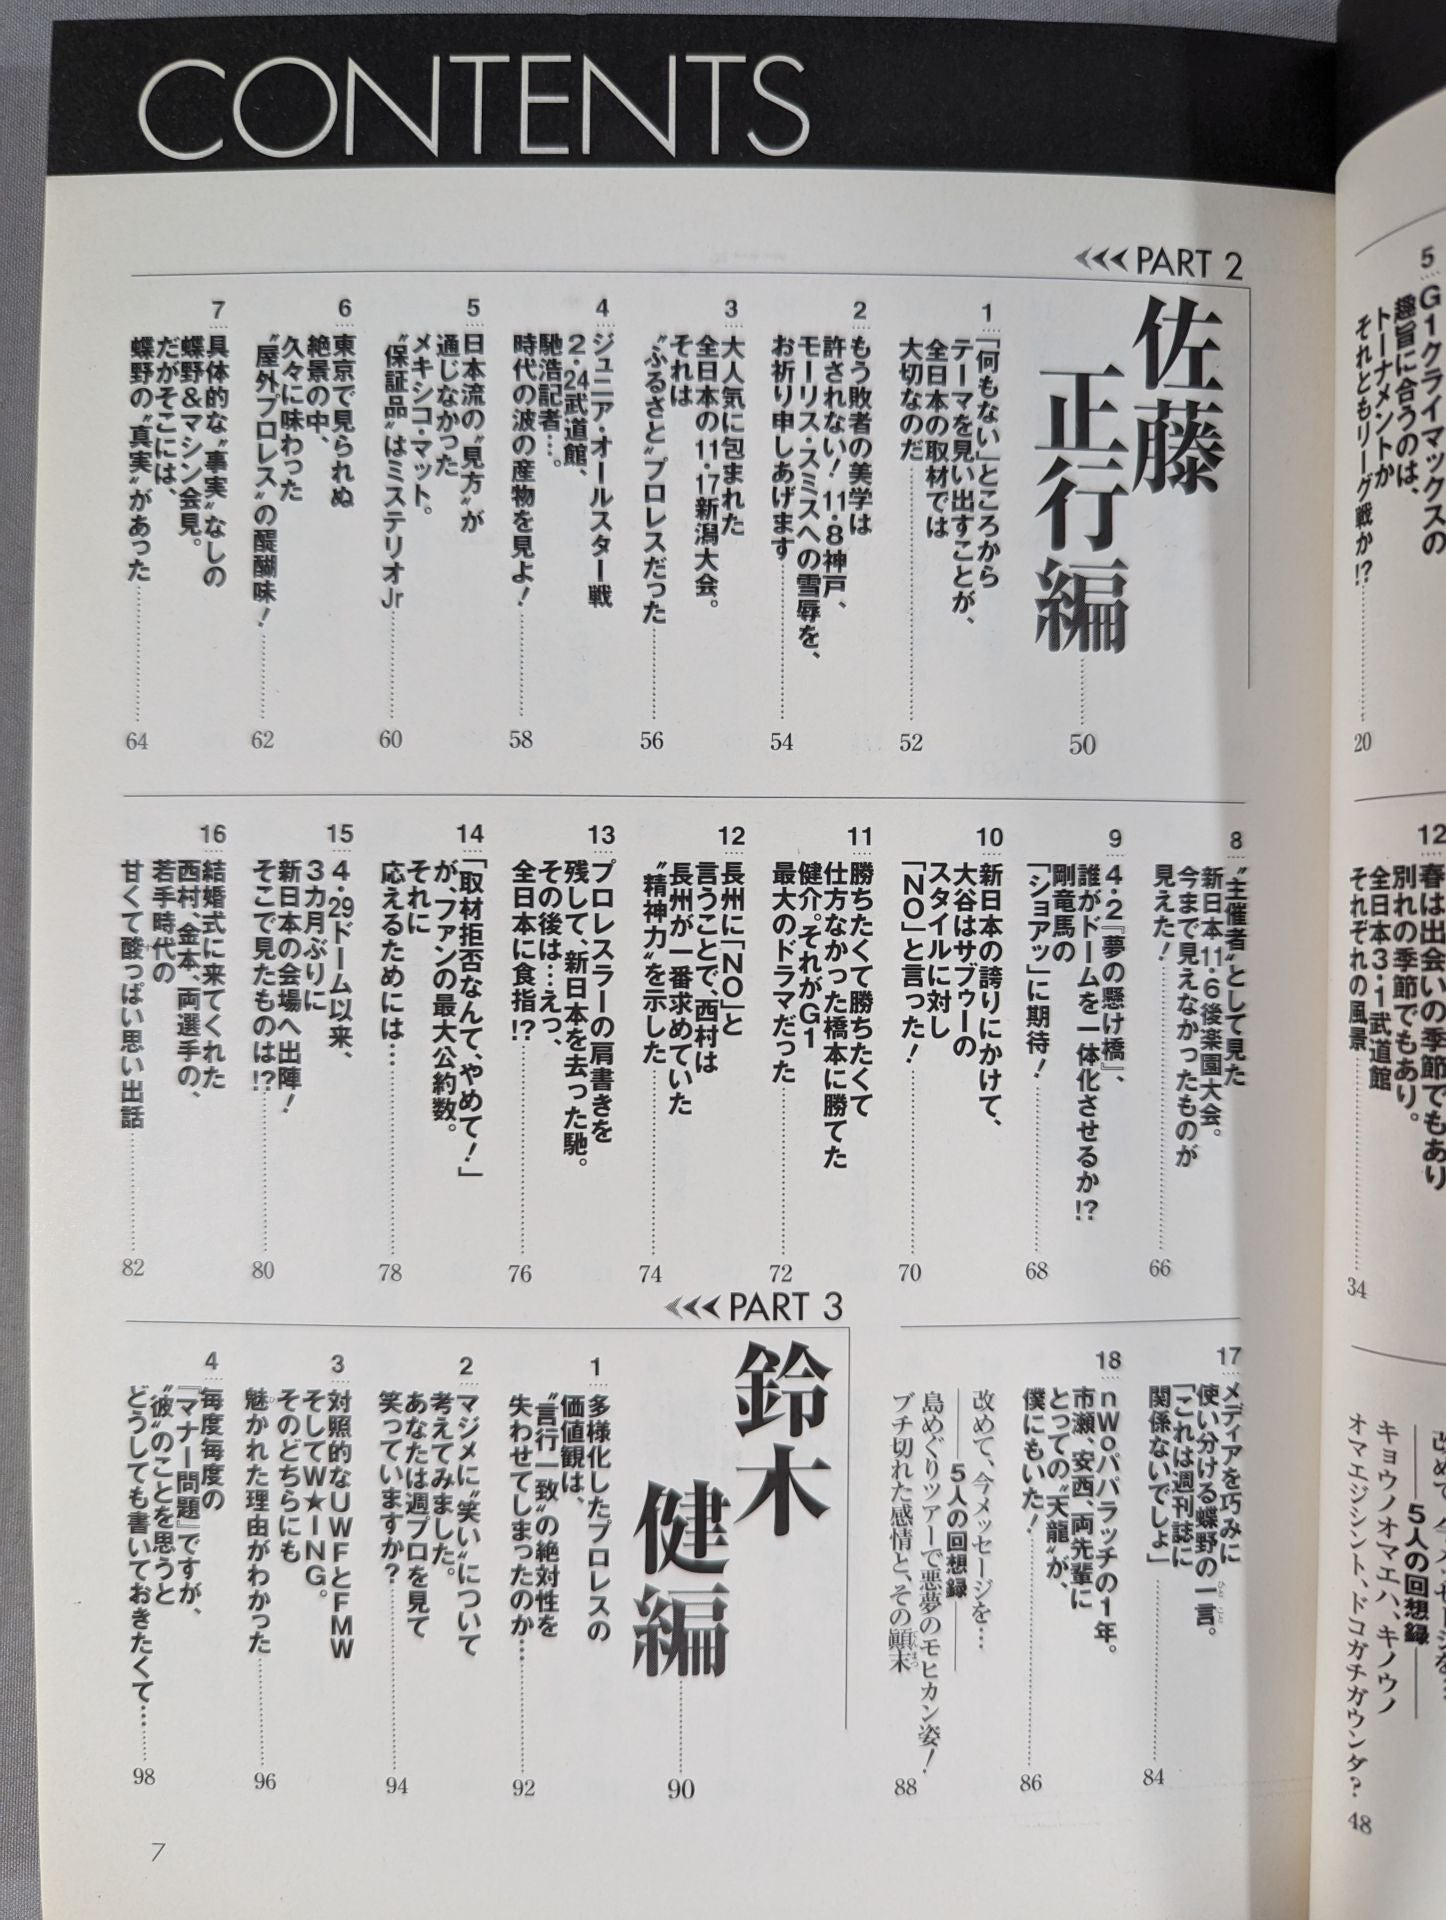 CONTENTS
PART 2
佐藤
正行編
50
1
「何もない」ところから
テーマを見い出すことが、
全日本の取材では
大切なのだ
52
2
もう敗者の美学は
許されない！11・8神戸、
モーリス・スミスへの雪辱を、
お祈り申しあげます
54
3
大人気に包まれた
全日本の11・17新潟大会。
それは
〝ふるさと〟プロレスだった
56
4
ジュニア・オールスター戦
2・24武道館、
馳浩記者…。
時代の波の産物を見よ！
58
5
日本流の〝見方〟が
通じなかった
メキシコ・マット。
〝保証品〟はミステリオJr
60
6
東京で見られぬ
絶景の中、
久々に味わった
〝屋外プロレス〟の醍醐味！
62
7
具体的な〝事実〟なしの
蝶野＆マシン会見。
だがそこには、
蝶野の〝真実〟があった
64
8
〝主催者〟として見た
新日本11・6後楽園大会。
今まで見えなかったものが
見えた！
66
9
4・2『夢の懸け橋』、
誰がドームを一体化させるか!?
剛竜馬の
「ショアッ」に期待！
68
10
新日本の誇りにかけて、
大谷はサブゥーの
スタイルに対し
「NO」と言った！
70
11
勝ちたくて勝ちたくて
仕方なかった橋本に勝てた
健介。それがG1
最大のドラマだった
72
12
長州に「NO」と
言うことで、西村は
長州が一番求めていた
〝精神力〟を示した
74
13
プロレスラーの肩書きを
残して、新日本を去った馳。
その後は…えっ、
全日本に食指!?
76
14
「取材拒否なんて、やめて！」
が、ファンの最大公約数。
それに
応えるためには…
78
15
4・29ドーム以来、
3カ月ぶりに
新日本の会場へ出陣！
そこで見たものは!?
80
16
結婚式に来てくれた
西村、金本、両選手の、
若手時代の
甘くて酸っぱい思い出話
82
17
メディアを巧みに
使い分ける蝶野の一言。
「これは週刊誌に
関係ないでしょ」
84
18
nWoパパラッチの1年。
市瀬、安西、両先輩に
とっての〝天龍〟が、
僕にもいた！
86
改めて、今メッセージを…
5人の回想録
島めぐりツアーで悪夢のモヒカン姿！
ブチ切れた感情と、その顚末
88
PART 3
鈴木
健編
90
1
多様化したプロレスの
価値観は、
〝言行一致〟の絶対性を
失わせてしまったのか…
92
2
マジメに〝笑い〟について
考えてみました。
あなたは週プロを見て
笑っていますか？
94
3
対照的なUWFとFMW
そしてW★ING。
そのどちらにも
魅かれた理由がわかった
96
4
毎度毎度の
『マナー問題』ですが、
〝彼〟のことを思うと
どうしても書いておきたくて…
98
7
5
G1クライマックスの
趣旨に合うのは、
トーナメントか
それともリーグ戦か!?
20
12
春は出会いの季節でもあり
別れの季節でもあり。
全日本3・1武道館
それぞれの風景
34
5人の回想録
キョウノオマエハ、キノウノ
オマエジシント、ドコガチガウンダ？
48